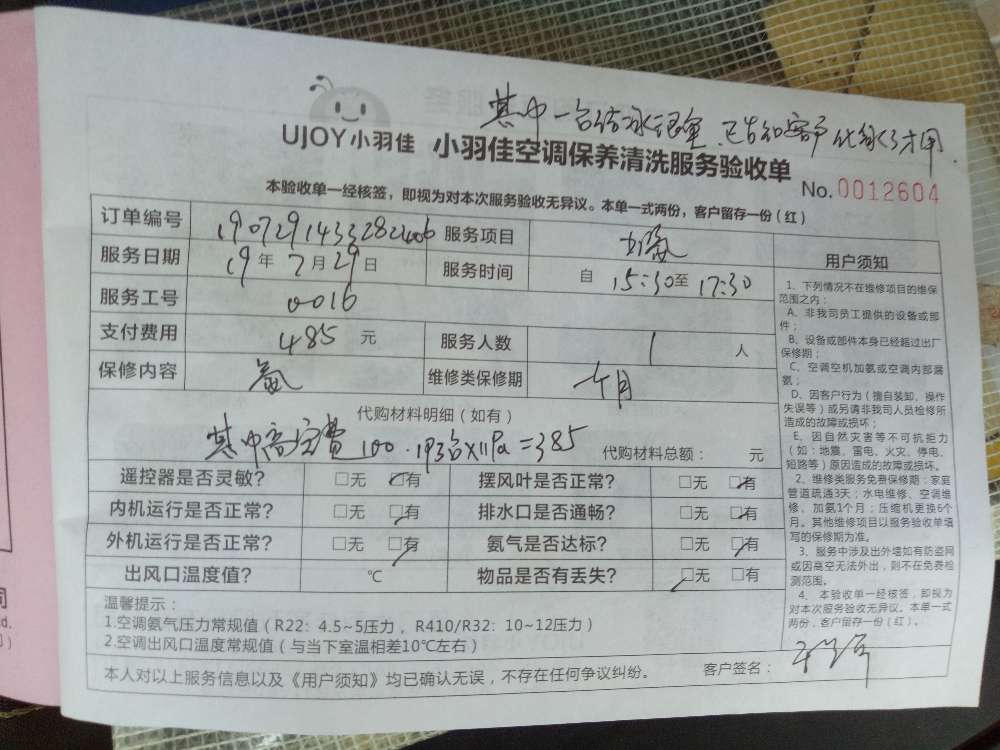 其中一台结冰很重,已告知客户化冰了才用.
UJOY小羽佳 小羽佳空调保养清洗服务验收单
No.0012604
本验收单一经核签,即视为对本次服务验收无异议。本单一式两份,客户留存一份(红)
订单编号 服务项目 加氨
服务日期 19年7月29日 服务时间 自15:30至17:30
服务工号 0016
支付费用 485元 服务人数 1人
保修内容 氨 维修类保修期 个月
代购材料明细(如有)
其中高空费100. 3台×11Pa=385 代购材料总额: 元
遥控器是否灵敏? □无 □有 摆风叶是否正常? □无 □有
内机运行是否正常? □无 □有 排水口是否通畅? □无 □有
外机运行是否正常? □无 □有 氨气是否达标? □无 □有
出风口温度值? ℃ 物品是否有丢失? □无 □有
温馨提示:
1.空调氨气压力常规值(R22: 4.5~5压力, R410/R32: 10~12压力)
2.空调出风口温度常规值(与当下室温相差10℃左右)
本人对以上服务信息以及《用户须知》均已确认无误,不存在任何争议纠纷。 客户签名:
用户须知
1、下列情况不在维修项目的维保
范围之内:
A、非我司员工提供的设备或部
件;
B、设备或部件本身已经超过出厂
保修期;
C、空调空机加氨或空调内部漏
氨;
D、因客户行为(擅自装卸、操作
失误等)或另请非我司人员检修所
造成的故障或损坏;
E、因自然灾害等不可抗拒力
(如:地震、雷电、火灾、停电、
短路等)原因造成的故障或损坏。
2、维修类服务免费保修期:家庭
管道疏通3天;水电维修、空调维
修、加氨1个月;压缩机更换6个
月。其他维修项目以服务验收单填
写的保修期为准。
3、服务中涉及出外墙如有防盗网
或因高空无法外出,则不在免费检
测范围。
4、本验收单一经核签,即视为
对本次服务验收无异议。本单一式
两份,客户留存一份(红)。
司
td.